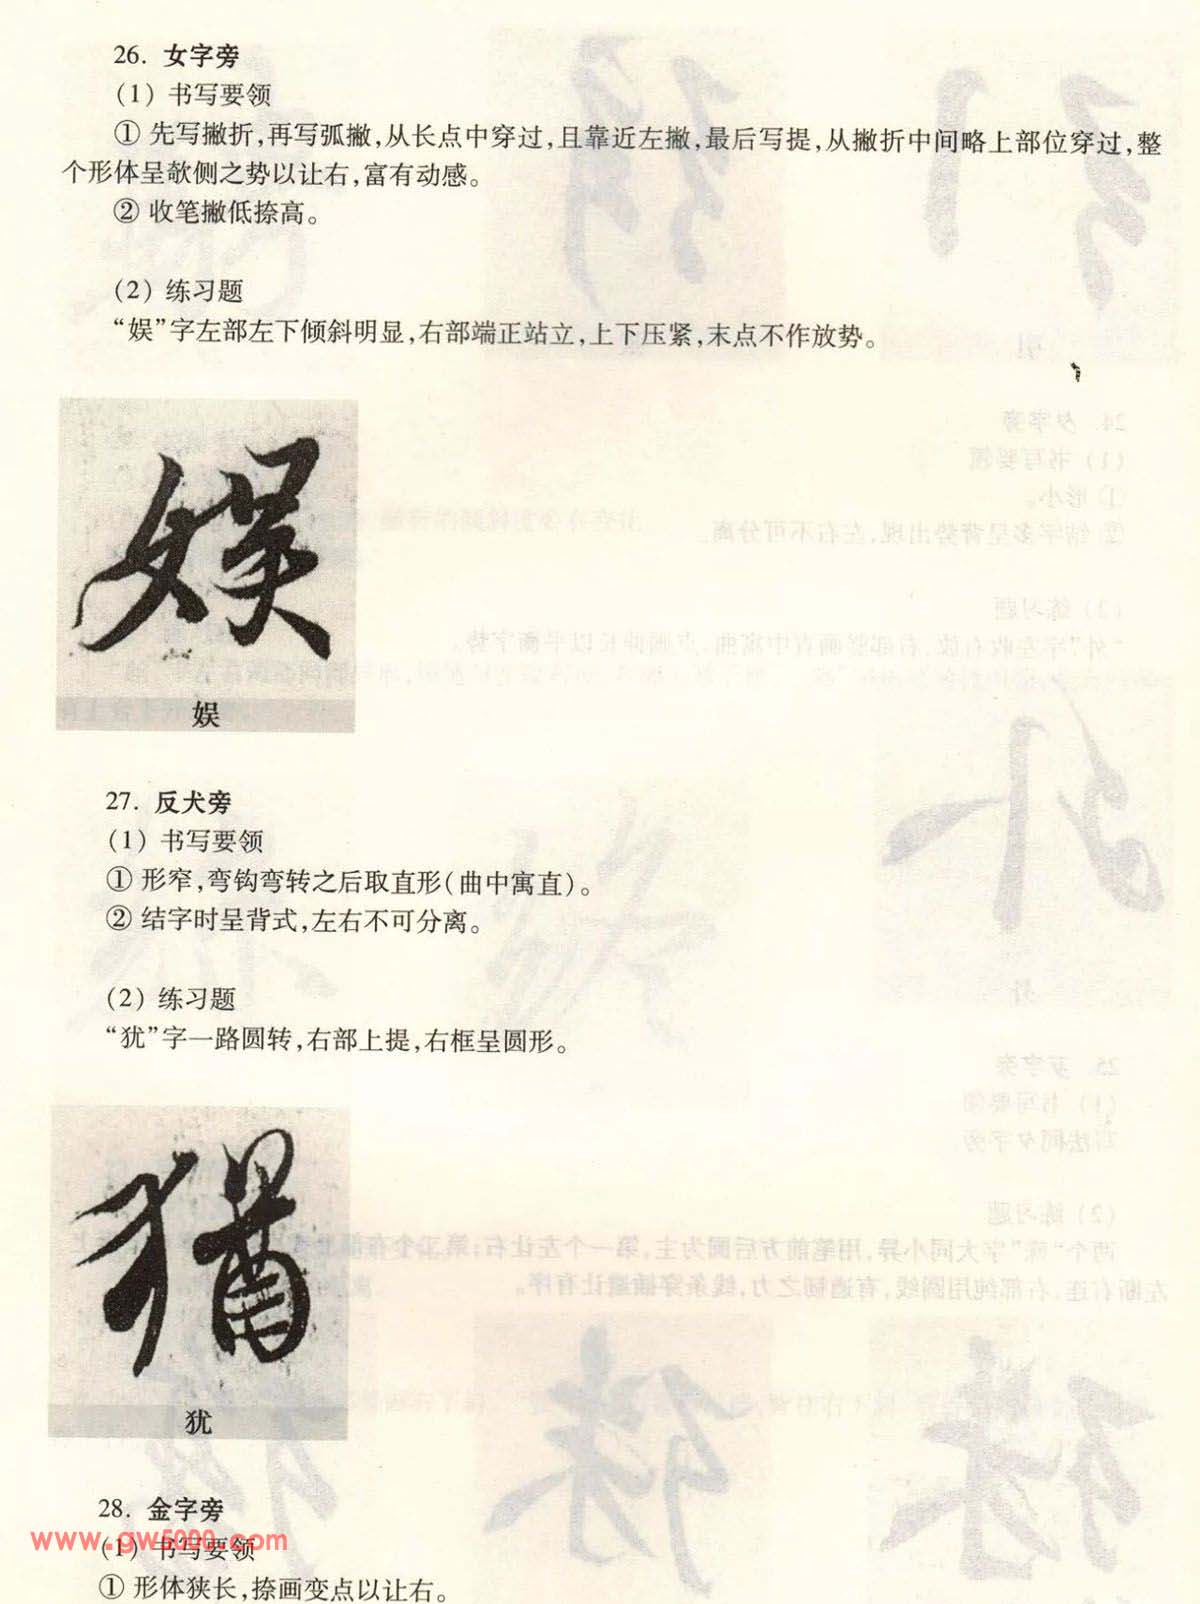 26. 女字旁
(1) 书写要领
① 先写撇折,再写弧撇,从长点中穿过,且靠近左撇,最后写提,从撇折中间略上部位穿过,整
个形体呈欹侧之势以让右,富有动感。
② 收笔撇低捺高。
(2) 练习题
“娱”字左部左下倾斜明显,右部端正站立,上下压紧,末点不作放势。
娱
娱
27. 反犬旁
(1) 书写要领
① 形窄,弯钩弯转之后取直形(曲中寓直)。
② 结字时呈背式,左右不可分离。
(2) 练习题
“犹”字一路圆转,右部上提,右框呈圆形。
猶
犹
28. 金字旁
www.gw5000.com
(1) 书写要领
① 形体狭长,捺画变点以让右。